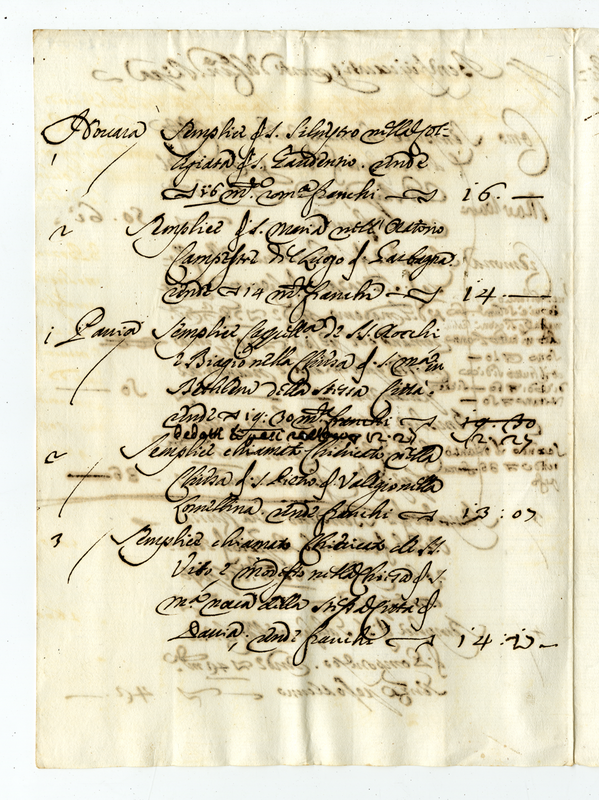 Novara Semplice di S. Silvestro nella Col=
1 legiata di S. Gaudentio. rende
16 m.ta rom.a franchi 16. —
2 Semplice di S. Maria nell' Oratorio
Campestre del luogo di Garbagna
rende 14 m.ta franchi 14 —
1 Pavia Semplice Capella de SS. Rocchi
e Biagio nella Chiesa di S. M.a in
Bethleem della stessa Città.
rende 19:30 m.ta franchi 19.30
12.27 12.27
2 Semplice chiamato Chiericato nella
Chiesa di S. Pietro di Valeggio nella
Lomellina. rende franchi 13:07
3 Semplice chiamato Chiericato di SS.
Vito e Modesto nella Chiesa di S.
M.a della di
Pavia, rende franchi 14: